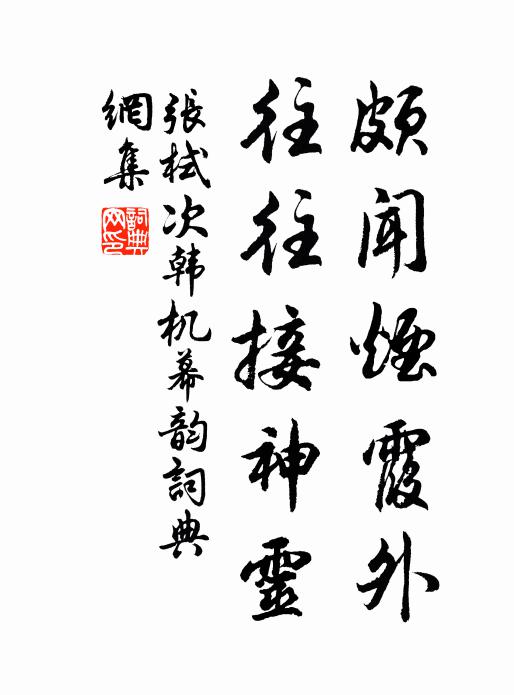 頗聞煙霞外
往往接神靈
張栻次韩机幕韵詞典
網集
詞典
网印